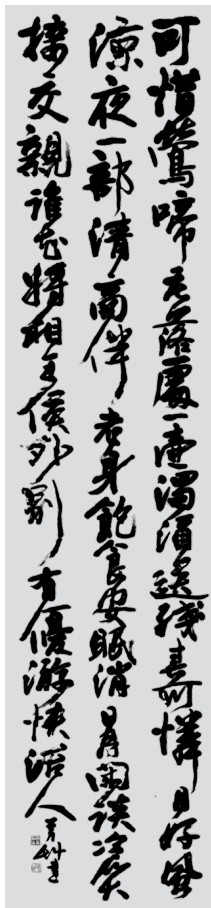 可惜鶯啼花落處一壺濁酒送殘春可憐月好風
涼夜一部清商伴老身飽食安眠消日月閑談冷笑
接交親誰知將相王侯外別有優游快活人